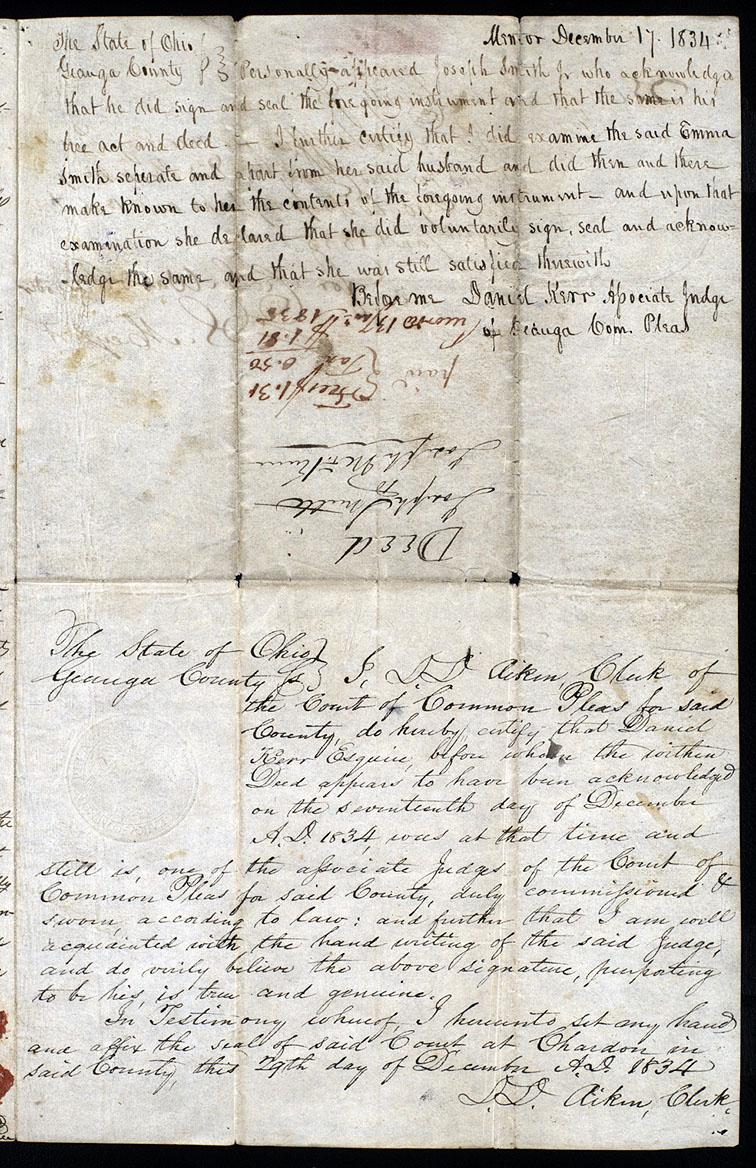 Mentor December 17. 1834
The State of Ohio
Geauga County Personally appeared Joseph Smith Jr who acknowledge
that he did sign and seal the foregoing instrument and that the same is his
free act and deed. — I further certify that I did examine the said Emma
Smith seperate and apart from her said husband and did then and there
make known to her the contents of the foregoing instrument — and upon that
examination she declared that she did voluntarily sign, seal and acknow-
-ledge the same and that she was still satisfied therewith
Before me Daniel Kerr Associate Judge
of Geauga Com. Pleas
Deed
Joseph Smith
to
Joseph
Fees $1.31
Tax 0.50
$1.81
paid
1835
The State of Ohio
Geauga County ss I, D.D. Aiken, Clerk of
the Court of Common Pleas for said
County, do hereby certify that Daniel
Kerr Esquire, before whom the within
Deed appears to have been acknowledged
on the seventeenth day of December
A.D. 1834, was at that time and
still is, one of the associate Judges of the Court of
Common Pleas for said County, duly commissioned &
sworn, according to law: and further that I am well
acquainted with the hand writing of the said Judge,
and do verily believe the above signature, purporting
to be his, is true and genuine.
In Testimony whereof, I hereunto set my hand
and affix the seal of said Court at Chardon in
said County, this 29th day of December A.D. 1834
D.D. Aiken, Clerk